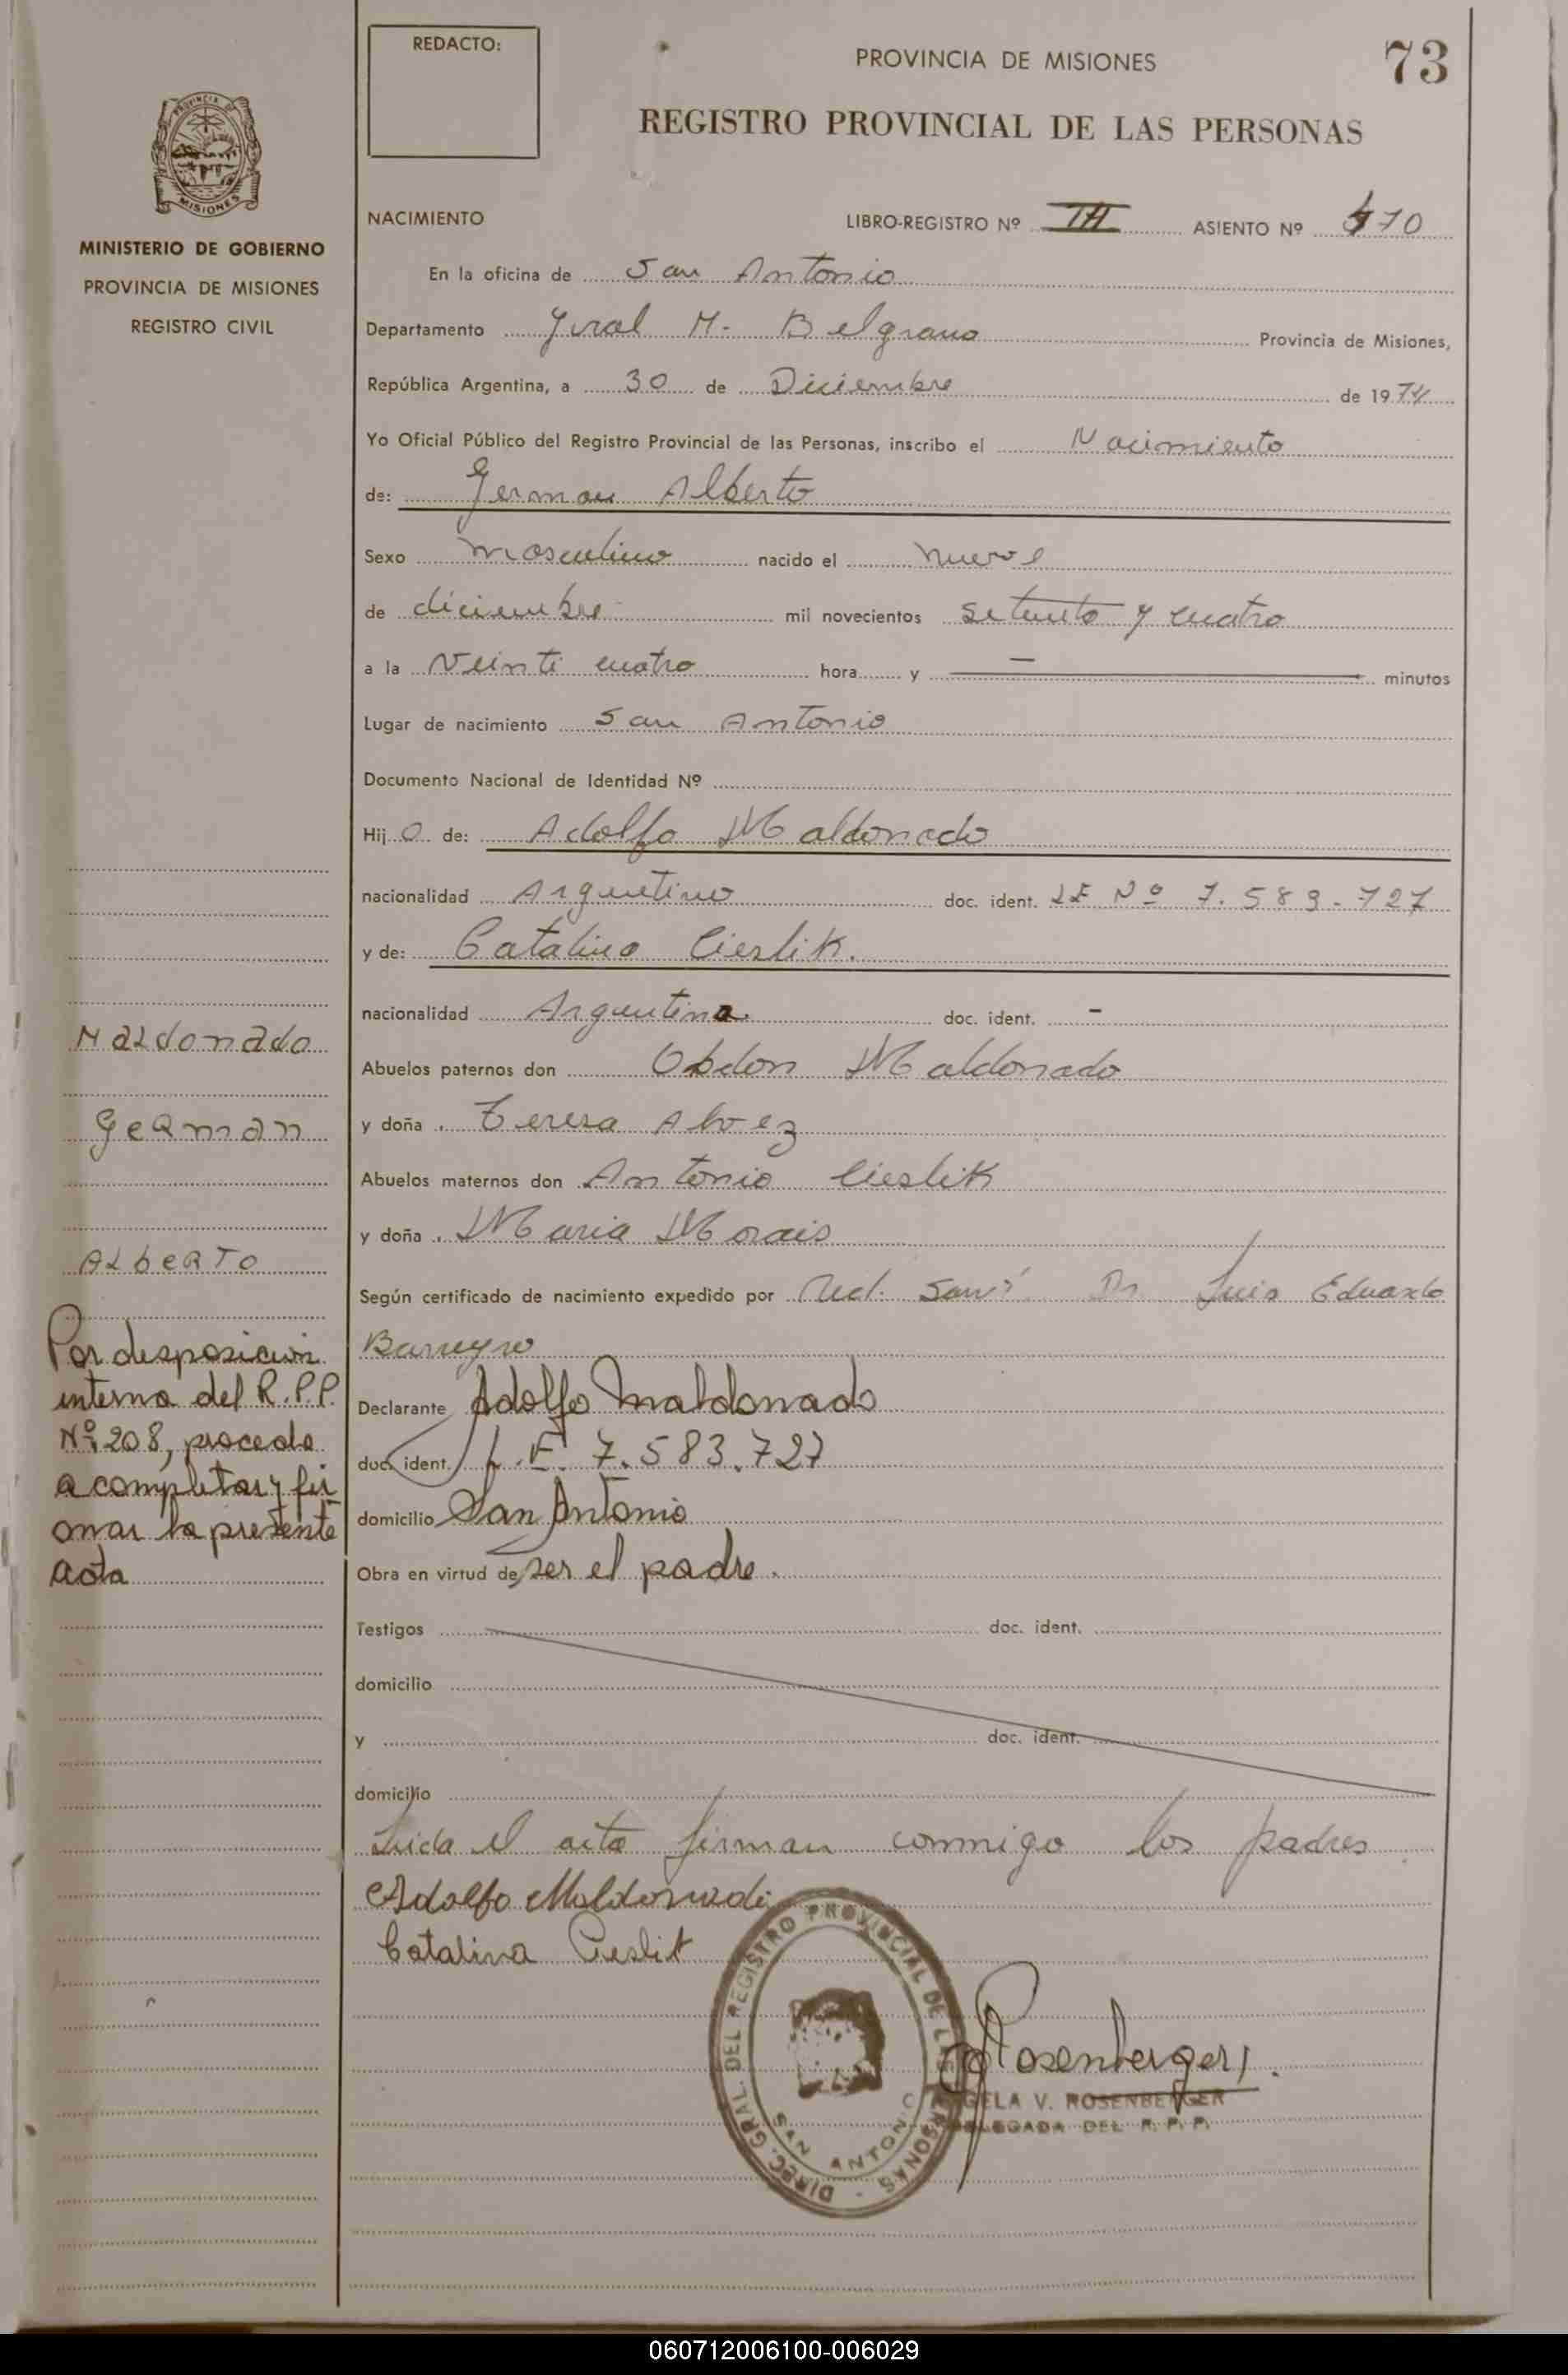 REDACTO:
PROVINCIA DE MISIONES
73
REGISTRO PROVINCIAL DE LAS PERSONAS
PROVINCIA DE
MISIONES
MINISTERIO DE GOBIERNO
PROVINCIA DE MISIONES
REGISTRO CIVIL
NACIMIENTO
LIBRO-REGISTRO Nº III ASIENTO Nº 70
En la oficina de San Antonio
Departamento Gral M. Belgrano Provincia de Misiones,
República Argentina, a 30 de Diciembre de 1974
Yo Oficial Público del Registro Provincial de las Personas, inscribo el Nacimiento
de: German Alberto
Sexo masculino nacido el nueve
de diciembre mil novecientos setenta y cuatro
a la veinti cuatro hora y — minutos
Lugar de nacimiento San Antonio
Documento Nacional de Identidad Nº
Hijo de: Adolfo Maldonado
nacionalidad Argentino doc. ident. LE Nº 7.583.727
y de: Catalina Cieslik.
nacionalidad Argentina. doc. ident. -
Abuelos paternos don Obdon Maldonado
y doña Teresa Alvez
Abuelos maternos don Antonio Cieslik
y doña Maria Morais
Según certificado de nacimiento expedido por Dr. Luis Eduardo
Barreyro
Declarante Adolfo Maldonado
doc. ident. L.E. 7.583.727
domicilio San Antonio
Obra en virtud de ser el padre.
Testigos doc. ident.
domicilio
y doc. ident.
domicilio
Leida el acta firman conmigo los padres
Adolfo Maldonado
Catalina Cieslik
Maldonado
German
Alberto
Por desposicion
interna del R.P.P.
Nº 208, procedo
a completar y fir
mar la presente
acta
DIREC. GRAL. DEL REGISTRO PROVINCIAL DE LAS PERSONAS -
SAN ANTONIO
Rosenberger
GELA V. ROSENBERGER
DELEGADA DEL R. P. P.
060712006100-006029